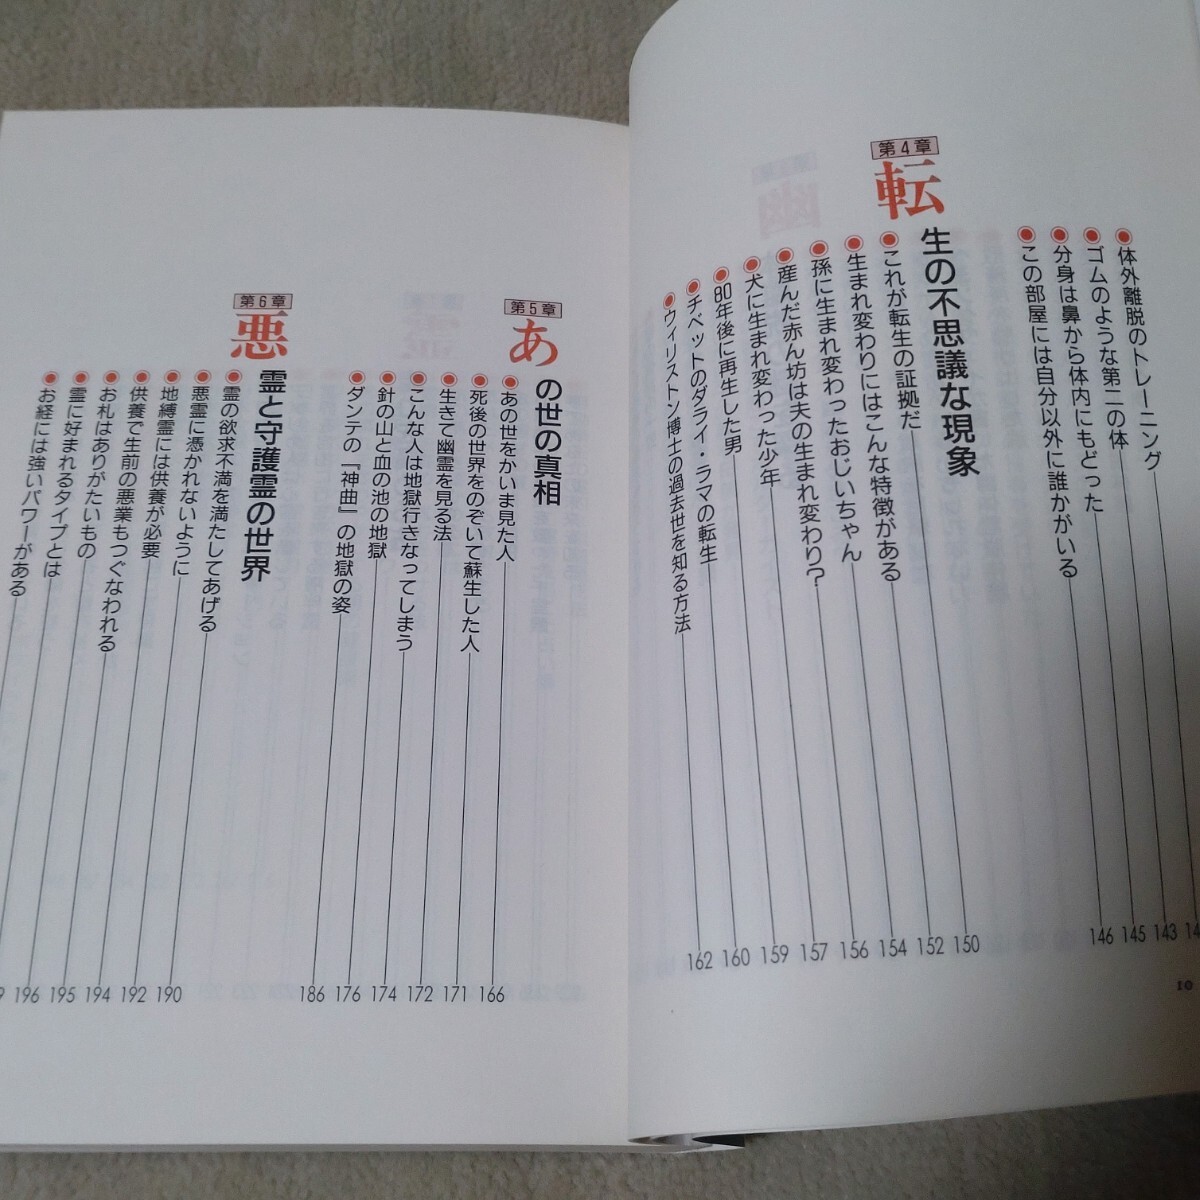 体外離脱のトレーニング
ゴムのような第二の体 143
分身は鼻から体内にもどった 145
この部屋には自分以外に誰かがいる 146
第4章
転生の不思議な現象
これが転生の証拠だ 150
生まれ変わりにはこんな特徴がある 152
孫に生まれ変わったおじいちゃん 154
産んだ赤ん坊は夫の生まれ変わり? 156
犬に生まれ変わった少年 157
80年後に再生した男 159
チベットのダライ・ラマの転生 160
ウィリストン博士の過去世を知る方法 162
10
第5章
あの世の真相
あの世をかいま見た人 166
死後の世界をのぞいて蘇生した人 171
生きて幽霊を見る法 172
こんな人は地獄行きなってしまう 174
針の山と血の池の地獄 176
ダンテの『神曲』の地獄の姿 186
第6章
悪霊と守護霊の世界
霊の欲求不満を満たしてあげる 190
悪霊に憑かれないように 192
地縛霊には供養が必要 194
供養で生前の悪業もつぐなわれる 195
お札はありがたいもの 196
霊に好まれるタイプとは
お経には強いパワーがある